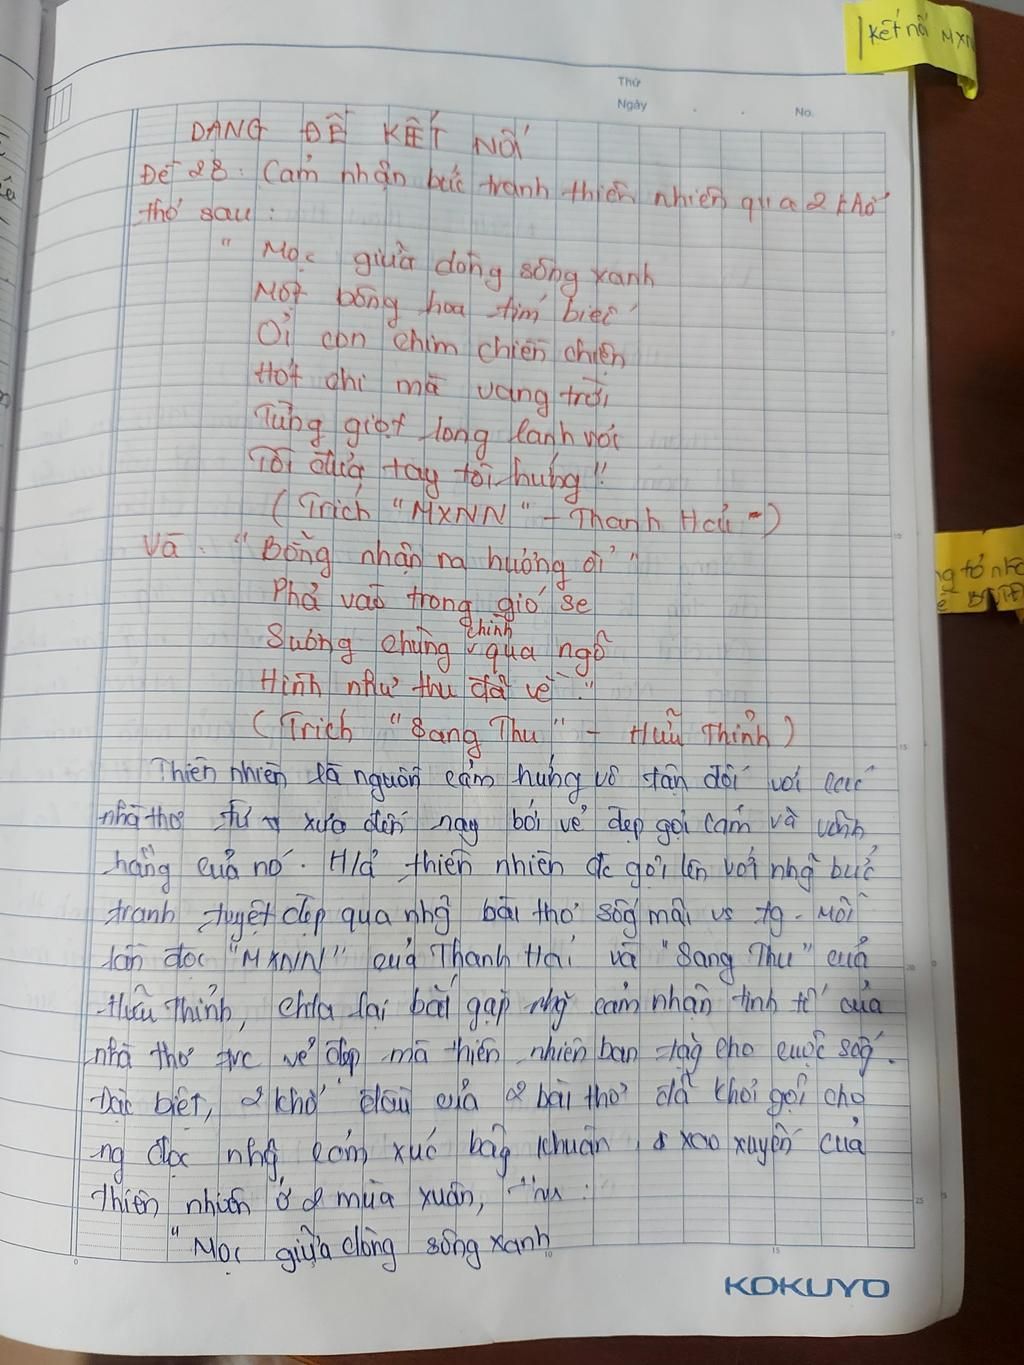 kết nối MXN
Thứ
Ngày . . No.
DẠNG ĐỀ KẾT NỐI
Đề 28: Cảm nhận bức tranh thiên nhiên qua 2 khổ
thơ sau:
"Mọc giữa dòng sông xanh
Một bông hoa tím biếc
Ơi con chim chiền chiện
Hót chi mà vang trời
Từng giọt long lanh rơi
Tôi đưa tay tôi hứng"
(Trích "MXNN" - Thanh Hải -)
Và "Bỗng nhận ra hương ổi"
Phả vào trong gió se
chình
Sương chùng qua ngõ
Hình như thu đã về."
(Trích "Sang Thu" - Hữu Thỉnh)
Thiên nhiên là nguồn cảm hứng vô tận đối với các
nhà thơ từ xưa đến nay bởi vẻ đẹp gợi cảm và vĩnh
hằng của nó. H/ả thiên nhiên đc gợi lên với nhg bức
tranh tuyệt đẹp qua nhg bài thơ sống mãi vs tg. Mỗi
lần đọc "MXNN" của Thanh Hải và "Sang Thu" của
Hữu Thỉnh, chta lại bắt gặp nhg cảm nhận tinh tế của
nhà thơ trc vẻ đẹp mà thiên nhiên ban tặng cho cuộc sống.
Đặc biệt, 2 khổ đầu của 2 bài thơ đã khơi gợi cho
ng đọc nhg cảm xúc bâng khuân, xao xuyến của
thiên nhiên ở 2 mùa xuân, thu:
"Mọc giữa dòng sông xanh
KOKUYO